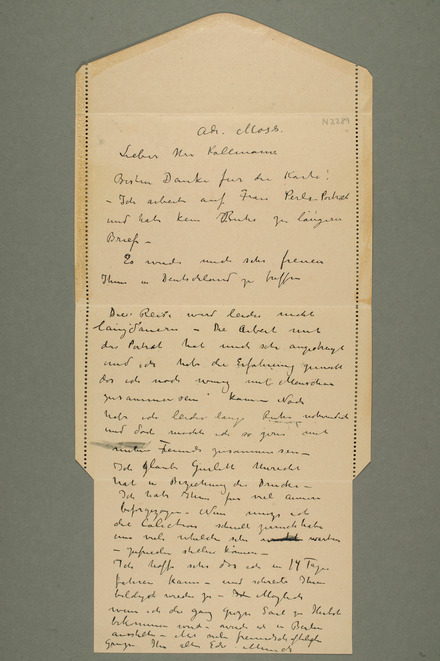 N2289
adr. Moss.
Lieber Herr Kollmann
Besten Danke für die Karte!
– Ich arbeite auf Frau Perls Porträt
und habe kein Ruhe zu längern
Brief –
Es würde mich sehr freuen
Ihnen in Deutschland zu treffen
Die Reise wird leider nicht
langdauern – Die Arbeit mit
das Porträt hat mich sehr angestrengt
und ich habe die Erfahrung gemacht
das ich noch wenig mit Menschen
zusammen sein kann – Nach
habe ich leider lange Ruhe notwendig
und doch möchte ich so gerne mit
meine Freunde zusammen sein –
Ich glaube Gurlitt Unrecht
hat in Beziehung der Drucke –
Ich habe Ihnen für viel
– Nun muss ich
die schnell zurück habe
und viele welche sehr warten
– zufrieden stellen können –
Ich hoffe sehr das ich in 14 Tage
fahren kann – und schreibe Ihnen
baldigst wieder zu – Ist Möglich
wenn ich die ganz grosse Saal zu Herbst
bekommen wird – würde ich in Berlin
ausstellen – Mit viele freundschaftliche
Grüsse Ihr alten Edv Munch